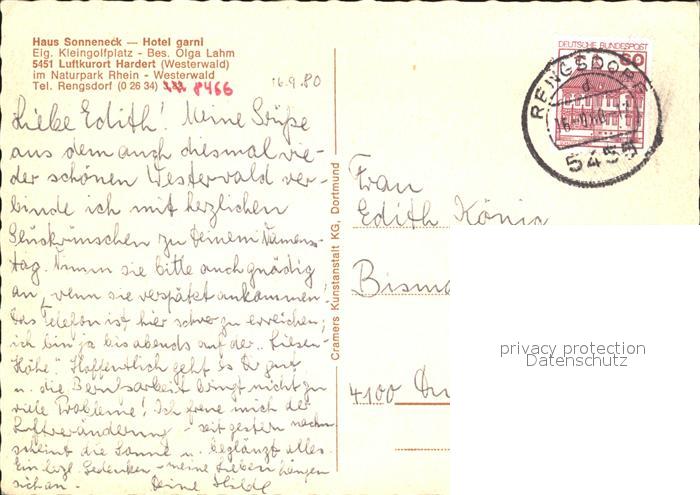 Haus Sonneneck — Hotel garni
Eig. Kleingolfplatz - Bes. Olga Lahm
5451 Luftkurort Hardert (Westerwald)
im Naturpark Rhein - Westerwald
Tel. Rengsdorf (0 26 34) 8466
16.9.80
Liebe Edith! Meine Grüße
aus dem auch diesmal wie-
der schönen Westerwald ver-
binde ich mit herzlichen
Glückwünschen zu Deinem Namens-
tag. Nimm sie bitte auch gnädig
an, wenn sie verspätet ankommen.
Das Telefon ist hier schwer zu erreichen;
ich bin ja bis abends auf der "Liesen-
Höhe". Hoffentlich geht es Dir gut
u. die Berufsarbeit bringt nicht zu
viele Probleme! Ich freue mich der
Luftveränderung - seit gestern nachm.
scheint die Sonne u. beglänzt alles.
Ein herzl. Gedenken - meine Lieben hängen
sich an. Deine Hilde
Cramers Kunstanstalt KG, Dortmund
DEUTSCHE BUNDESPOST
60
RENGSDORF
5455
Frau
Edith König
Bisma
4100 Du
privacy protection
Datenschutz